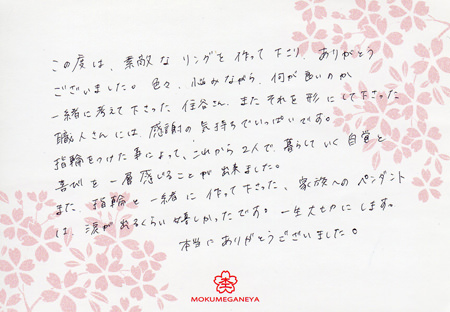 この度は、素敵なリングを作って下さり、ありがとう
ございました。色々、悩みながら、何が良いのか
一緒に考えて下さった住谷さん、またそれを形にして下さった
職人さんには、感謝の気持ちでいっぱいです。
指輪をつけた事によって、これから2人で、暮らしていく自覚と
喜びを一層感じることが出来ました。
また、指輪と一緒に作って下さった、家族へのペンダント
は、涙が出るくらい嬉しかったです。一生大切にします。
本当にありがとうございました。
MOKUMEGANEYA